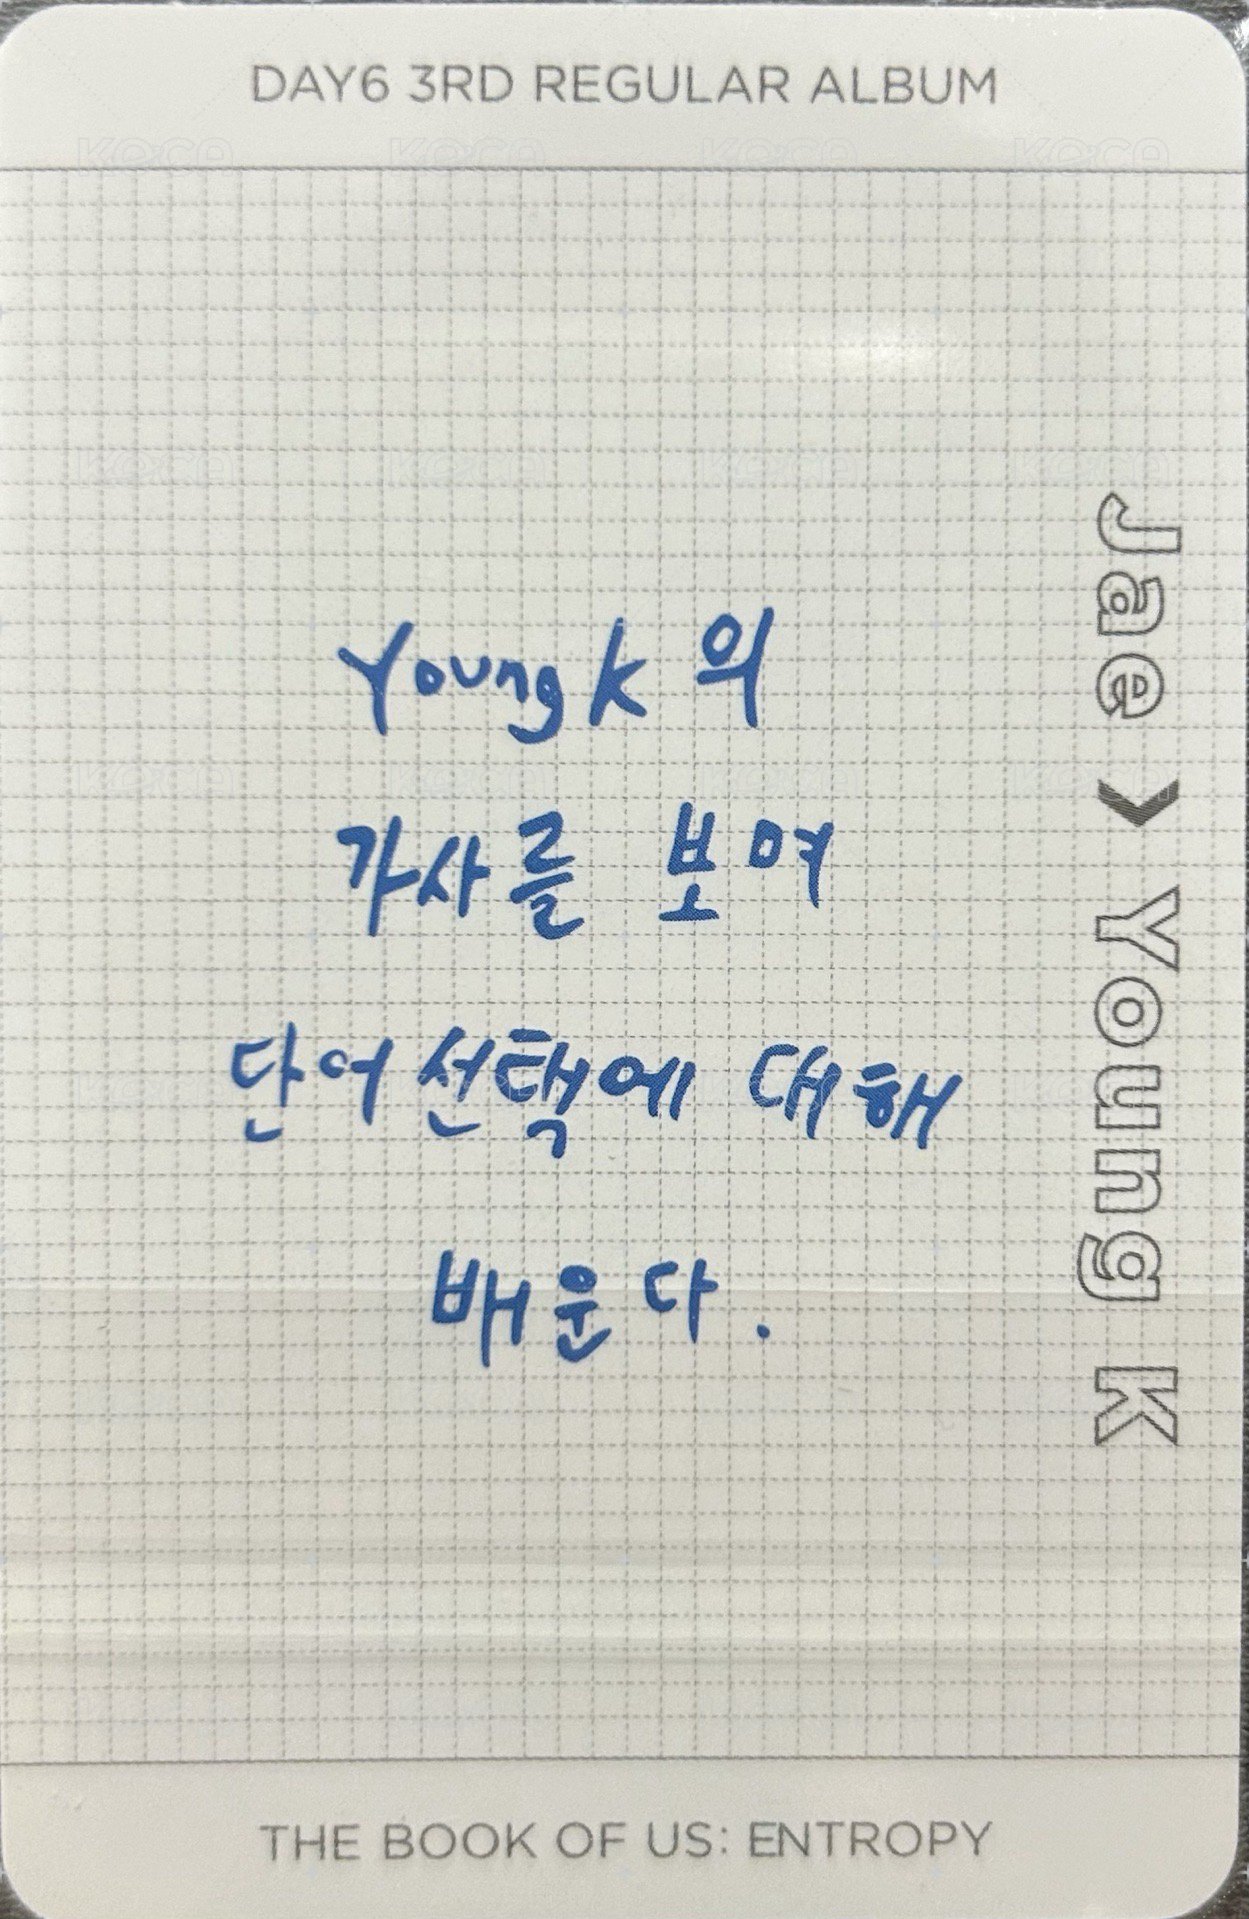 DAY6 3RD REGULAR ALBUM
Young K의
가사를 보며
단어선택에 대해
배운다.
Jae > Young K
THE BOOK OF US: ENTROPY